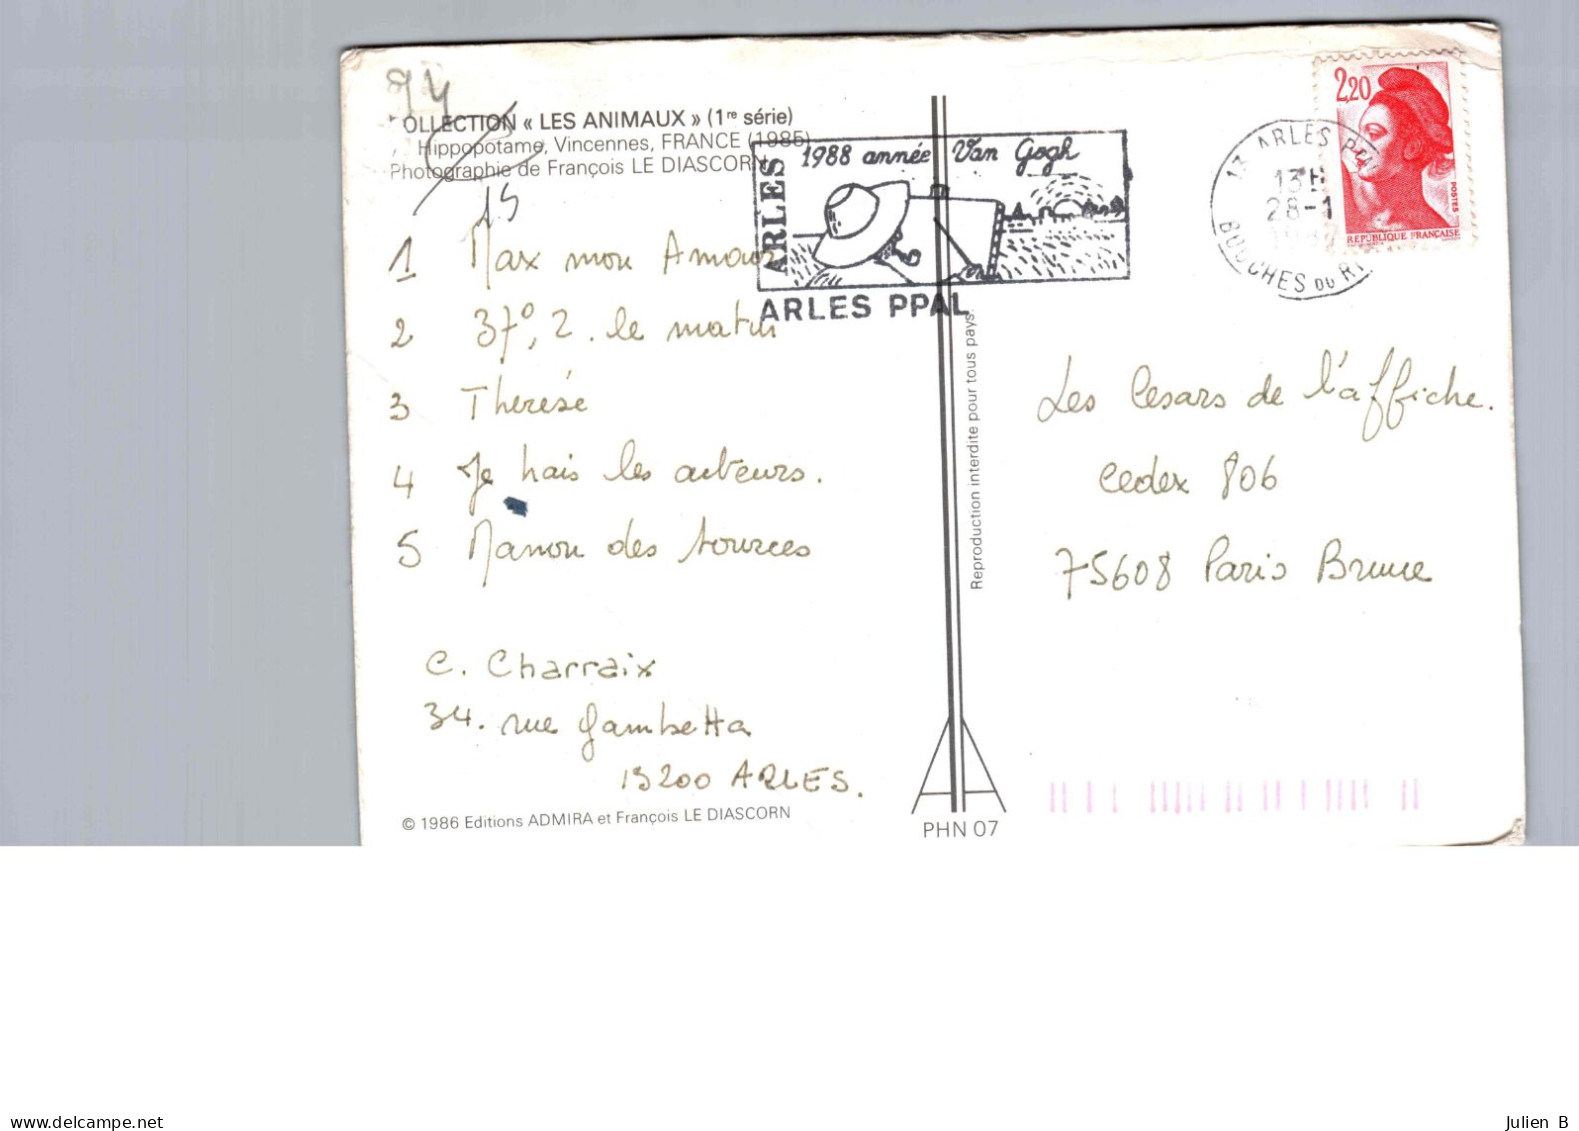 94
OLLECTION « LES ANIMAUX » (1re série)
Hippopotame, Vincennes, FRANCE (1985)
Photographie de François LE DIASCORN
15
ARLES
1988 année Van Gogh
ARLES PPAL
13 ARLES Pal
13H
28-1
BOUCHES DU RH
2,20
POSTES
REPUBLIQUE FRANÇAISE
1 Max mon Amour
2 37°,2. le matin
3 Thérèse
4 Je hais les acteurs.
5 Manon des sources
C. Charraix
34. rue Gambetta
13200 ARLES.
© 1986 Editions ADMIRA et François LE DIASCORN
Reproduction interdite pour tous pays.
PHN 07
Les Cesars de l'affiche.
Cedex 806
75608 Paris Brune
delcampe.net
Julien B